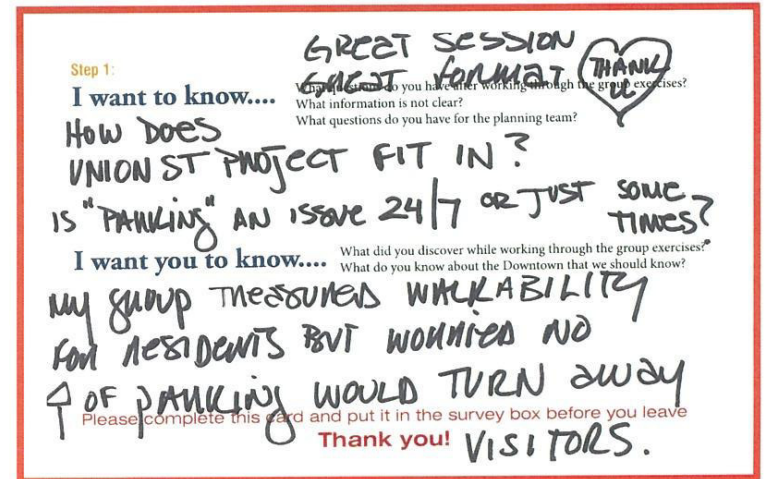 GREAT SESSION
GREAT FORMAT THANK U
Step 1:
I want to know....
What questions do you have after working through the group exercises?
What information is not clear?
What questions do you have for the planning team?
HOW DOES
UNION ST PROJECT FIT IN?
IS "PARKING" AN ISSUE 24/7 OR JUST SOME
TIMES?
I want you to know....
What did you discover while working through the group exercises?
What do you know about the Downtown that we should know?
MY GROUP TREASURED WALKABILITY
FOR RESIDENTS BUT WORRIED NO
↑ OF PARKING WOULD TURN AWAY
Please complete this card and put it in the survey box before you leave
Thank you! VISITORS.